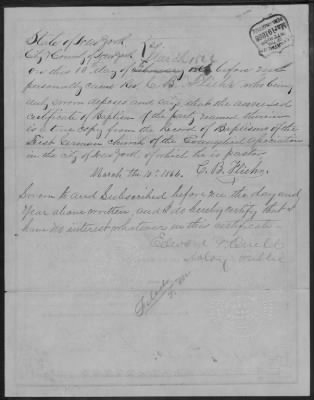 State of New York
City & County of New York } ss.
on this 10 day of March 1866 before
personally came Rev. C. B. Fliehr who being
duly sworn deposes and says that the annexed
certificate of Baptism of the party named therein
is a true copy from the Record of Baptisms of the
First German Church of the Evangelical Association
in the city of New York of which he is pastor
March the 10th 1866. C. B. Fliehr.
Sworn to and Subscribed before me the day and
Year above written and I do hereby certify that I
have no interest whatever in this certificate
Edward
Notary Public